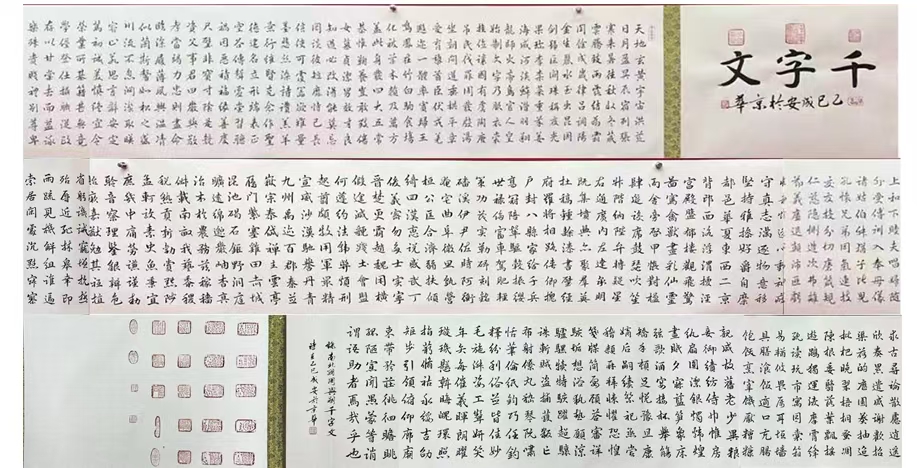 千字文
乙巳成安於京華
天地玄黃宇宙洪荒
日月盈昃辰宿列張
寒來暑往秋收冬藏
閏餘成歲律呂調陽
雲騰致雨露結為霜
金生麗水玉出崑岡
劍號巨闕珠稱夜光
果珍李柰菜重芥薑
海鹹河淡鱗潛羽翔
龍師火帝鳥官人皇
始制文字乃服衣裳
推位讓國有虞陶唐
弔民伐罪周發殷湯
坐朝問道垂拱平章
愛育黎首臣伏戎羌
遐邇一體率賓歸王
鳴鳳在樹白駒食場
化被草木賴及萬方
蓋此身髮四大五常
恭惟鞠養豈敢毀傷
女慕貞潔男效才良
知過必改得能莫忘
罔談彼短靡恃己長
信使可覆器欲難量
墨悲絲染詩讚羔羊
景行維賢克念作聖
德建名立形端表正
空谷傳聲虛堂習聽
禍因惡積福緣善慶
尺璧非寶寸陰是競
資父事君曰嚴與敬
孝當竭力忠則盡命
臨深履薄夙興溫凊
似蘭斯馨如松之盛
川流不息淵澄取映
容止若思言辭安定
篤初誠美慎終宜令
榮業所基籍甚無竟
學優登仕攝職從政
存以甘棠去而益詠
樂殊貴賤禮別尊卑
上和下睦夫唱婦隨
外受傅訓入奉母儀
諸姑伯叔猶子比兒
孔懷兄弟同氣連枝
交友投分切磨箴規
仁慈隱惻造次弗離
節義廉退顛沛匪虧
性靜情逸心動神疲
守真志滿逐物意移
堅持雅操好爵自縻
都邑華夏東西二京
背邙面洛浮渭據涇
宮殿盤鬱樓觀飛驚
圖寫禽獸畫彩仙靈
丙舍傍啟甲帳對楹
肆筵設席鼓瑟吹笙
升階納陛弁轉疑星
右通廣內左達承明
既集墳典亦聚群英
杜稿鍾隸漆書壁經
府羅將相路俠槐卿
戶封八縣家給千兵
高冠陪輦驅轂振纓
世祿侈富車駕肥輕
策功茂實勒碑刻銘
磻溪伊尹佐時阿衡
奄宅曲阜微旦孰營
桓公匡合濟弱扶傾
綺回漢惠說感武丁
俊乂密勿多士寔寧
晉楚更霸趙魏困橫
假途滅虢踐土會盟
何遵約法韓弊煩刑
起翦頗牧用軍最精
宣威沙漠馳譽丹青
九州禹跡百郡秦并
嶽宗泰岱禪主云亭
雁門紫塞雞田赤城
昆池碣石鉅野洞庭
曠遠綿邈巖岫杳冥
治本於農務茲稼穡
俶載南畝我藝黍稷
稅熟貢新勸賞黜陟
孟軻敦素史魚秉直
庶幾中庸勞謙謹敕
聆音察理鑒貌辨色
貽厥嘉猷勉其祗植
省躬譏誡寵增抗極
殆辱近恥林皋幸即
兩疏見機解組誰逼
索居閒處沉默寂寥
求古尋論散慮逍遙
欣奏累遣慼謝歡招
渠荷的歷園莽抽條
枇杷晚翠梧桐蚤凋
陳根委翳落葉飄搖
遊鵾獨運凌摩絳霄
耽讀玩市寓目囊箱
易輶攸畏屬耳垣牆
具膳飡飯適口充腸
飽飫烹宰飢厭糟糠
親戚故舊老少異糧
妾御績紡侍巾帷房
紈扇圓潔銀燭煒煌
晝眠夕寐藍筍象床
弦歌酒宴接杯舉觴
矯手頓足悅豫且康
嫡後嗣續祭祀烝嘗
稽顙再拜悚懼恐惶
箋牒簡要顧答審詳
骸垢想浴執熱願涼
驢騾犢特駭躍超驤
誅斬賊盜捕獲叛亡
布射僚丸嵇琴阮嘯
恬筆倫紙鈞巧任釣
釋紛利俗並皆佳妙
毛施淑姿工顰妍笑
年矢每催羲暉朗曜
璇璣懸斡晦魄環照
指薪修祜永綏吉劭
矩步引領俯仰廊廟
束帶矜莊徘徊瞻眺
孤陋寡聞愚蒙等誚
謂語助者焉哉乎也
錄南北朝周興嗣千字文
時在乙巳成安於京華